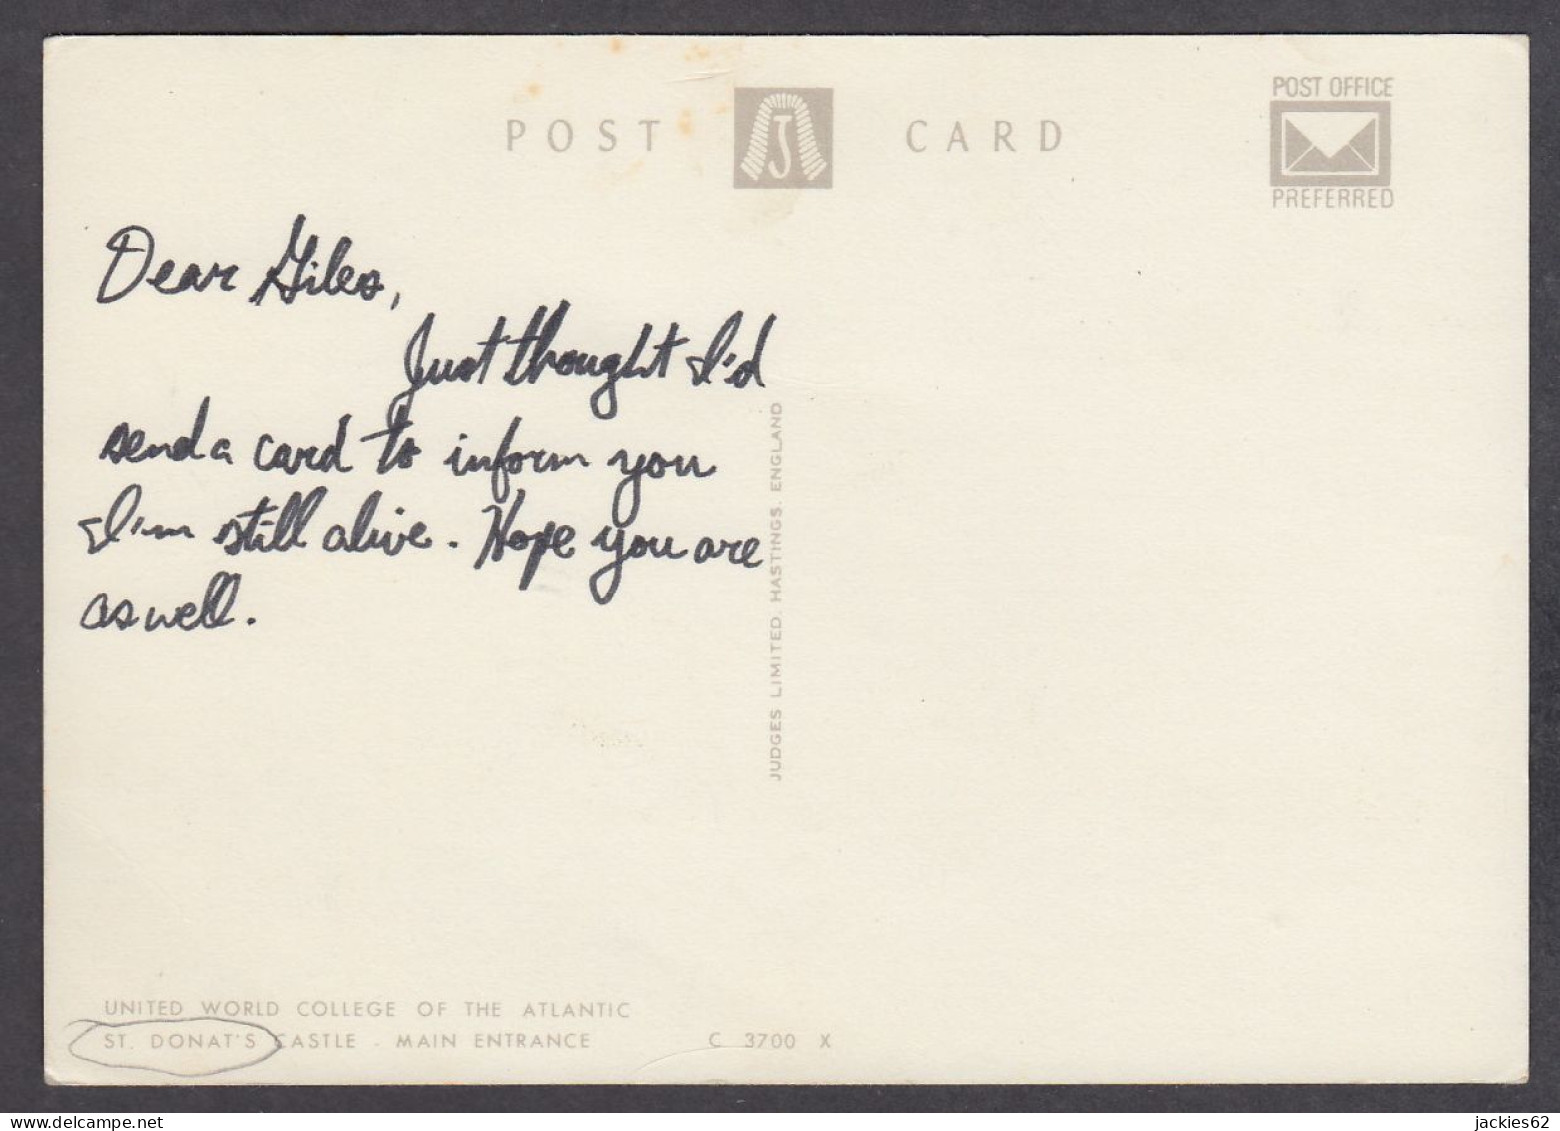 POST CARD
POST OFFICE
PREFERRED
Dear Giles,
Just thought I'd
send a card to inform you
I'm still alive. Hope you are
as well.
JUDGES LIMITED, HASTINGS, ENGLAND
UNITED WORLD COLLEGE OF THE ATLANTIC
ST. DONAT'S CASTLE - MAIN ENTRANCE C 3700 X
delcampe.net
jackies62